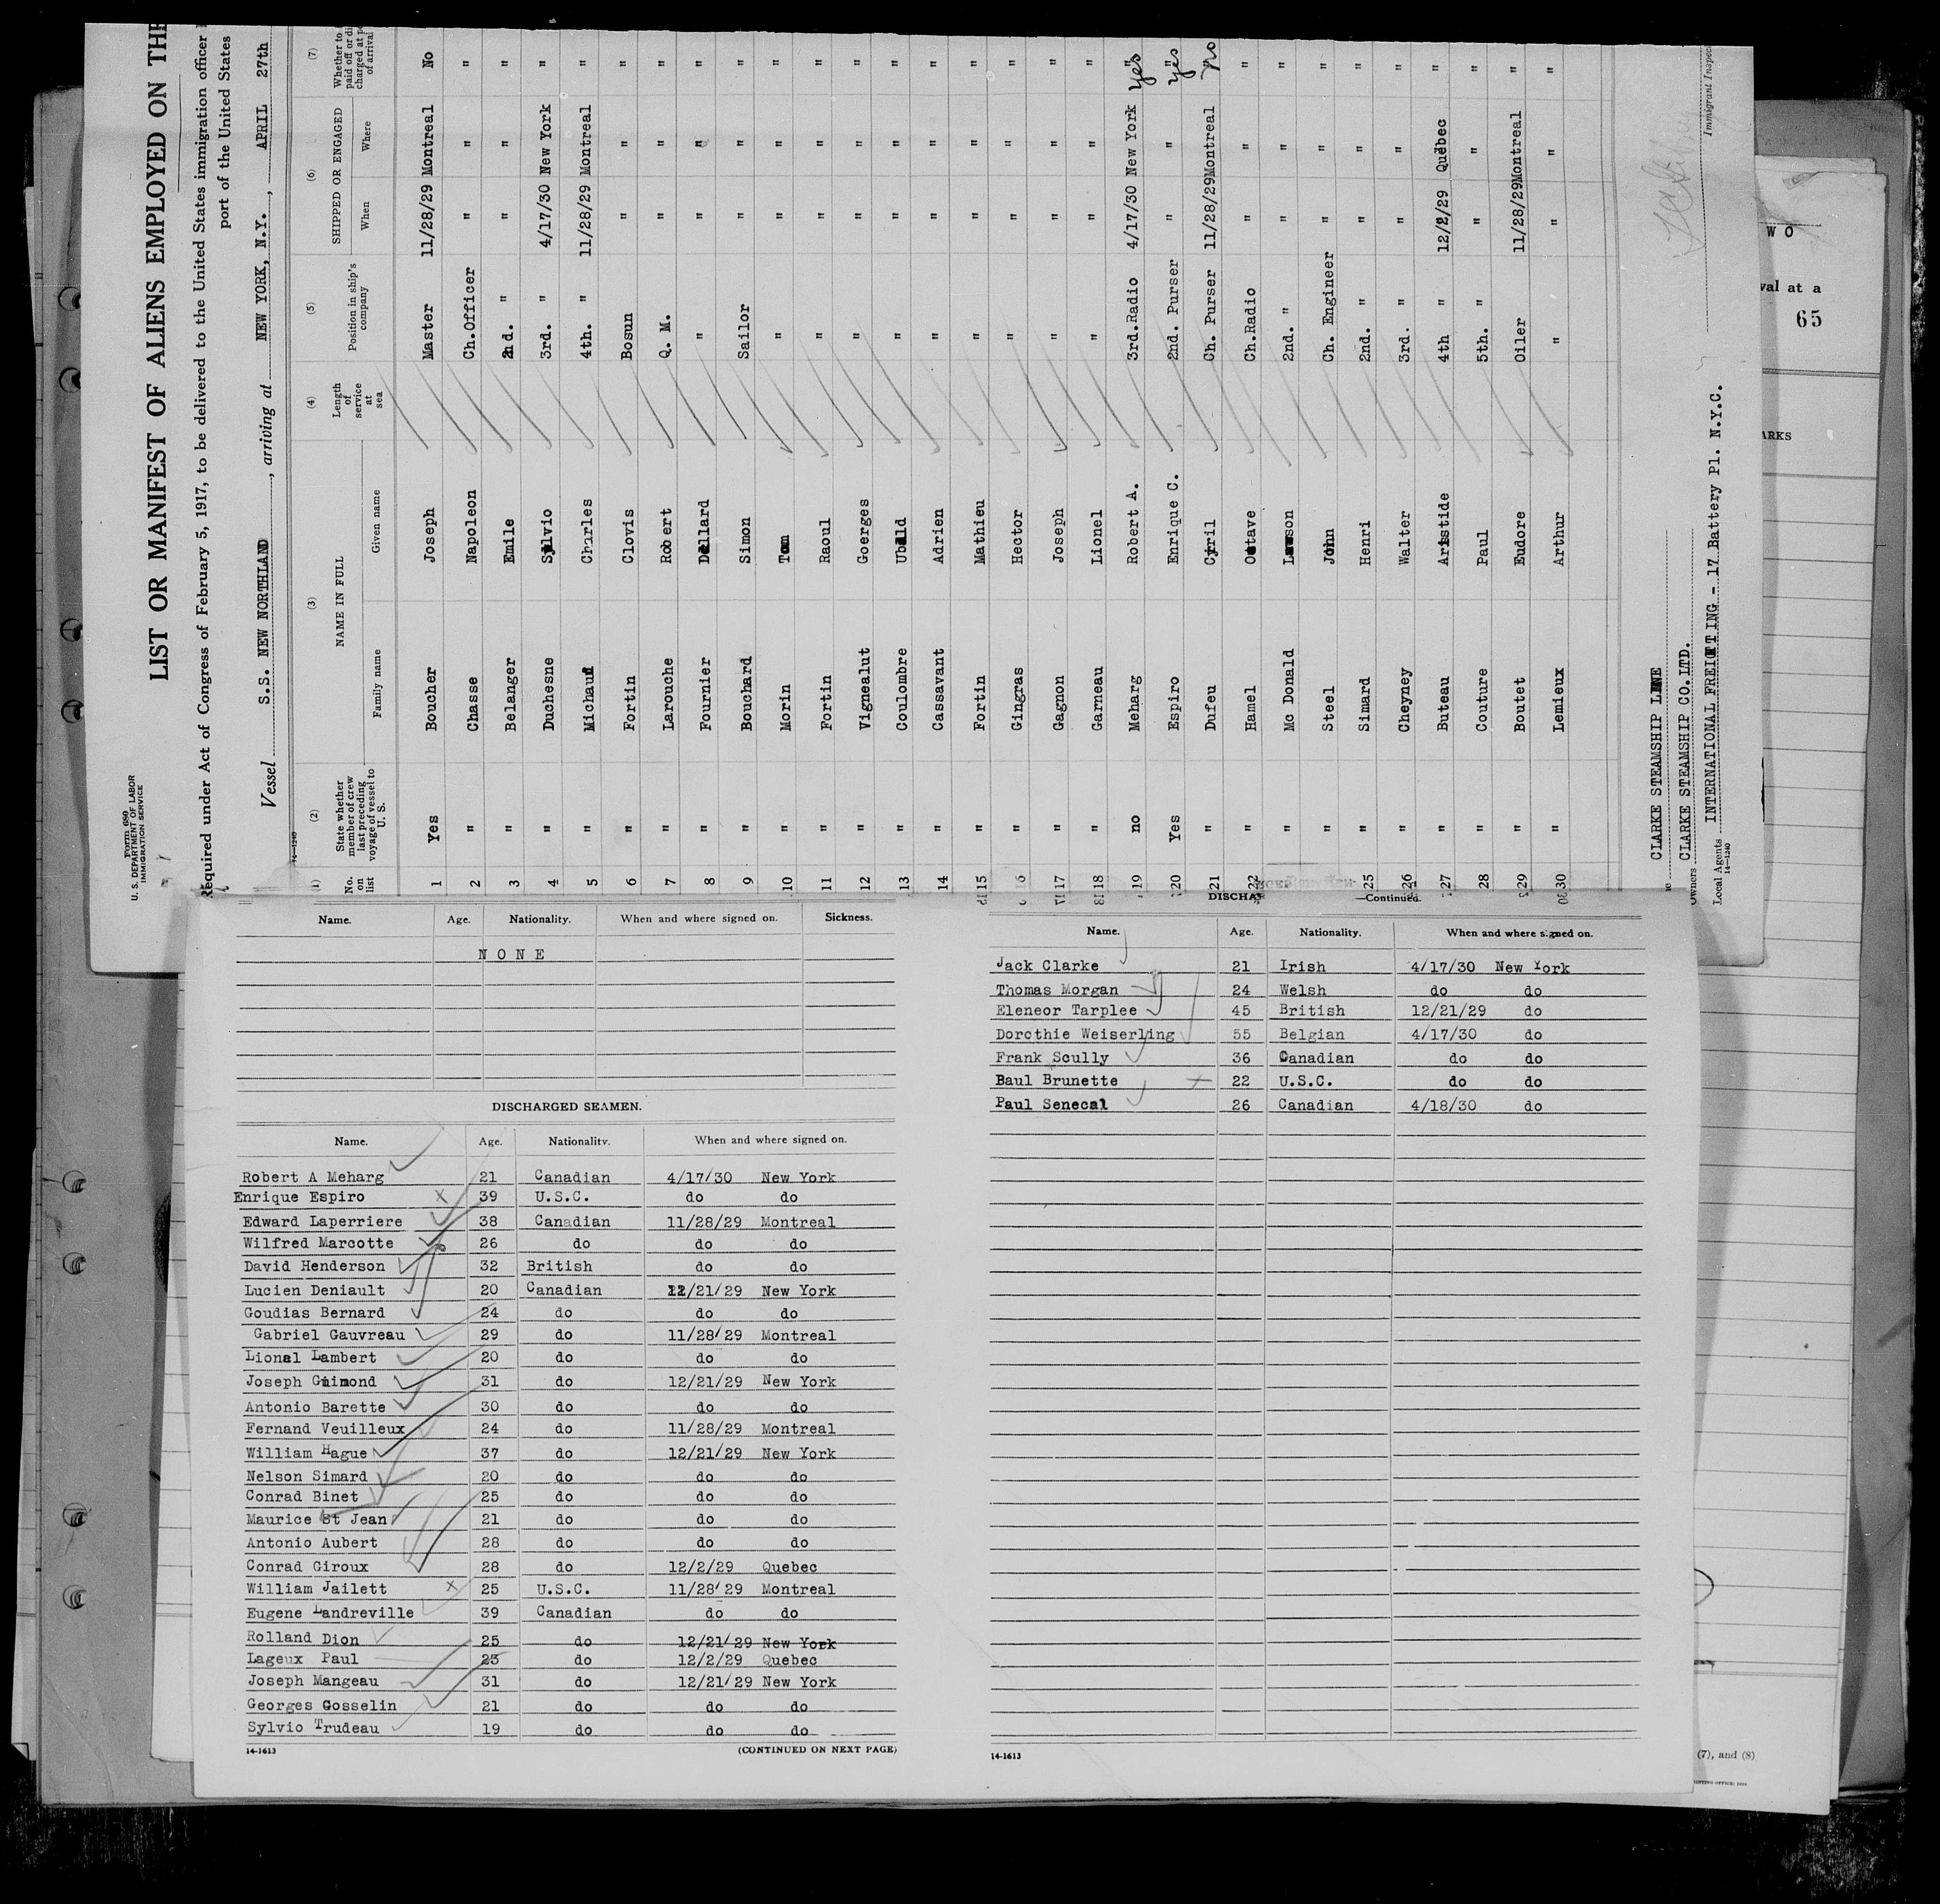 Form 680
U. S. DEPARTMENT OF LABOR
IMMIGRATION SERVICE
LIST OR MANIFEST OF ALIENS EMPLOYED ON THE
Required under Act of Congress of February 5, 1917, to be delivered to the United States immigration officer
port of the United States
Vessel S.S. NEW NORTHLAND, arriving at NEW YORK, N.Y., APRIL 27th
14-1240
(1) (2) (3) (4) (5) (6) (7)
No. on list State whether member of crew last preceding voyage of vessel to U. S. NAME IN FULL Family name Given name Length of service at sea Position in ship's company SHIPPED OR ENGAGED When Where Whether to paid off or charged at of arrival
1 Yes Boucher Joseph Master 11/28/29 Montreal No
2 " Chasse Napoleon Ch.Officer " " "
3 " Belanger Emile 2nd. " " " "
4 " Duchesne Sylvio 3rd. " 4/17/30 New York "
5 " Michaud Charles 4th. " 11/28/29 Montreal "
6 " Fortin Clovis Bosun " " "
7 " Larouche Robert Q. M. " " "
8 " Fournier Dollard " " " "
9 " Bouchard Simon Sailor " " "
10 " Morin Tom " " " "
11 " Fortin Raoul " " " "
12 " Vignealut Goerges " " " "
13 " Coulombre Ubald " " " "
14 " Cassavant Adrien " " " "
15 " Fortin Mathieu " " " "
16 " Gingras Hector " " " "
17 " Gagnon Joseph " " " "
18 " Garneau Lionel " " " "
19 no Meharg Robert A. 3rd.Radio 4/17/30 New York yes
20 Yes Espiro Enrique C. 2nd. Purser " " yes
21 " Dufeu Cyril Ch. Purser 11/28/29 Montreal no
22 " Hamel Octave Ch.Radio " " "
" Mc Donald Lawson 2nd. " " " "
" Steel John Ch. Engineer " " "
25 " Simard Henri 2nd. " " " "
26 " Cheyney Walter 3rd. " " " "
27 " Buteau Aristide 4th " 12/2/29 Quebec "
28 " Couture Paul 5th. " " " "
29 " Boutet Eudore Oiler 11/28/29 Montreal "
30 " Lemieux Arthur " " " "
CLARKE STEAMSHIP LINE
Owners CLARKE STEAMSHIP CO. LTD.
Local Agents INTERNATIONAL FREIGHTING - 17 Battery Pl. N.Y.C.
14-1240
Immigrant Inspec
W O
val at a
65
ARKS
(7), and (8)
Name. Age. Nationality. When and where signed on. Sickness.
N O N E
DISCHARGED SEAMEN.
Name. Age. Nationality. When and where signed on.
Robert A Meharg 21 Canadian 4/17/30 New York
Enrique Espiro x 39 U.S.C. do do
Edward Laperriere 38 Canadian 11/28/29 Montreal
Wilfred Marcotte 26 do do do
David Henderson 32 British do do
Lucien Deniault 20 Canadian 12/21/29 New York
Goudias Bernard 24 do do do
Gabriel Gauvreau 29 do 11/28/29 Montreal
Lionel Lambert 20 do do do
Joseph Guimond 31 do 12/21/29 New York
Antonio Barette 30 do do do
Fernand Veuilleux 24 do 11/28/29 Montreal
William Hague 37 do 12/21/29 New York
Nelson Simard 20 do do do
Conrad Binet 25 do do do
Maurice St Jean 21 do do do
Antonio Aubert 28 do do do
Conrad Giroux 28 do 12/2/29 Quebec
William Jailett x 25 U.S.C. 11/28/29 Montreal
Eugene Landreville 39 Canadian do do
Rolland Dion 25 do 12/21/29 New York
Lageux Paul 23 do 12/2/29 Quebec
Joseph Mangeau 31 do 12/21/29 New York
Georges Gosselin 21 do do do
Sylvio Trudeau 19 do do do
14-1613 (CONTINUED ON NEXT PAGE)
DISCHA —Continued.
Name. Age. Nationality. When and where signed on.
Jack Clarke 21 Irish 4/17/30 New York
Thomas Morgan 24 Welsh do do
Eleneor Tarplee 45 British 12/21/29 do
Dorothie Weiserling 55 Belgian 4/17/30 do
Frank Scully 36 Canadian do do
Baul Brunette x 22 U.S.C. do do
Paul Senecal 26 Canadian 4/18/30 do
14-1613